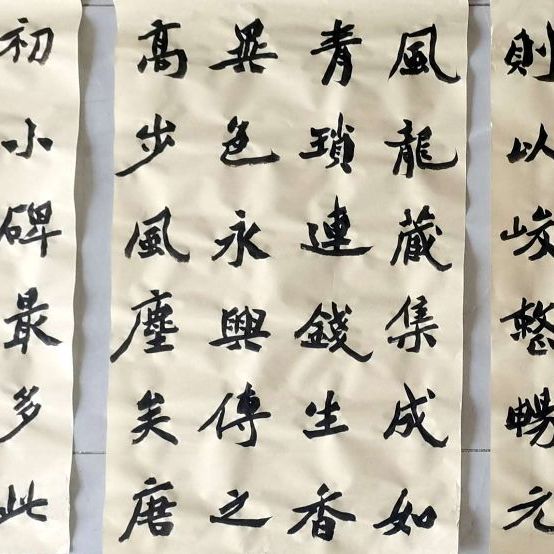 則以峻整暢元
風龍藏集成如
青瑣連錢生香
異色永興傳之
高步風塵矣唐
初小碑最多此